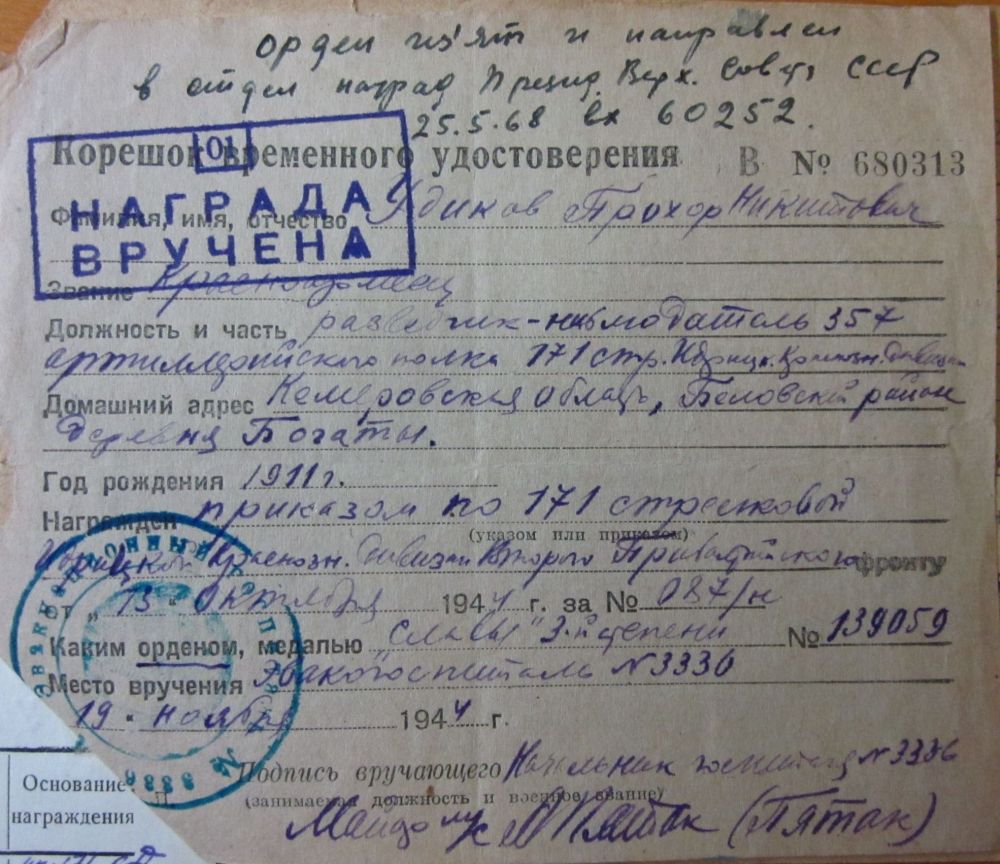 орден из'ят и направлен
в отдел наград Презид. Верх. Совета СССР
25.5.68 вх 60252.
Корешок временного удостоверения В № 680313
01
НАГРАДА
ВРУЧЕНА
Фамилия, имя, отчество Удиков Прохор Никитович
Звание Красноармеец
Должность и часть разведчик-наблюдатель 357
артиллерийского полка 171 стр. Идрицк. Краснозн. дивизии
Домашний адрес Кемеровская область, Беловский район
деревня Богаты.
Год рождения 1911 г.
Награжден приказом по 171 стрелковой
(указом или приказом)
Идрицкой Краснозн. дивизии Второго Прибалтийского фронту
от „ 13 " октября 1944 г. за № 087/н
Каким орденом, медалью „Славы" 3-й степени № 139059
Место вручения Эвакогоспиталь N 3336
19 " ноября 1944 г.
Подпись вручающего Начальник госпиталя N 3336
(занимаемая должность и военное звание)
Майор м/с (Пятак)
№ 3336
Основание
награждения